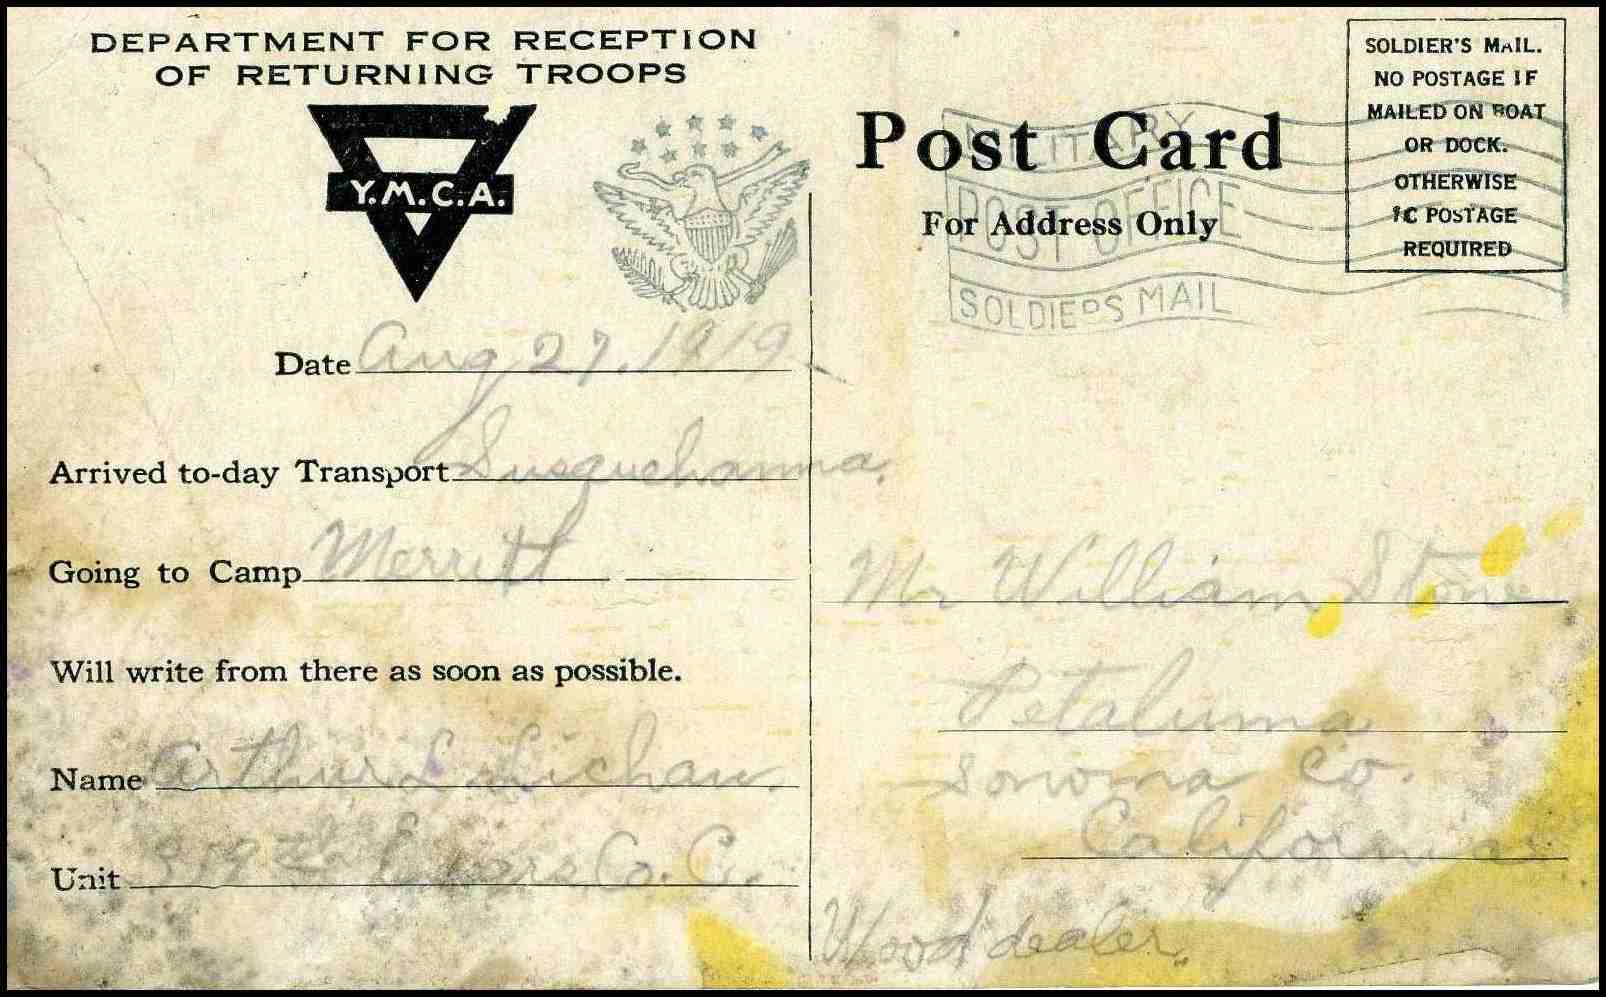 DEPARTMENT FOR RECEPTION
OF RETURNING TROOPS
Y.M.C.A.
Date Aug 27, 1919
Arrived to-day Transport Susquehanna,
Going to Camp Merritt
Will write from there as soon as possible.
Name Arthur L.
Unit 319th Engrs Co. C.
Post Card
For Address Only
SOLDIER'S MAIL.
NO POSTAGE IF
MAILED ON BOAT
OR DOCK.
OTHERWISE
1C POSTAGE
REQUIRED
MILITARY
POST OFFICE
SOLDIERS MAIL
Mr William Stone
Petaluma
Sonoma Co.
California
Wood dealer.